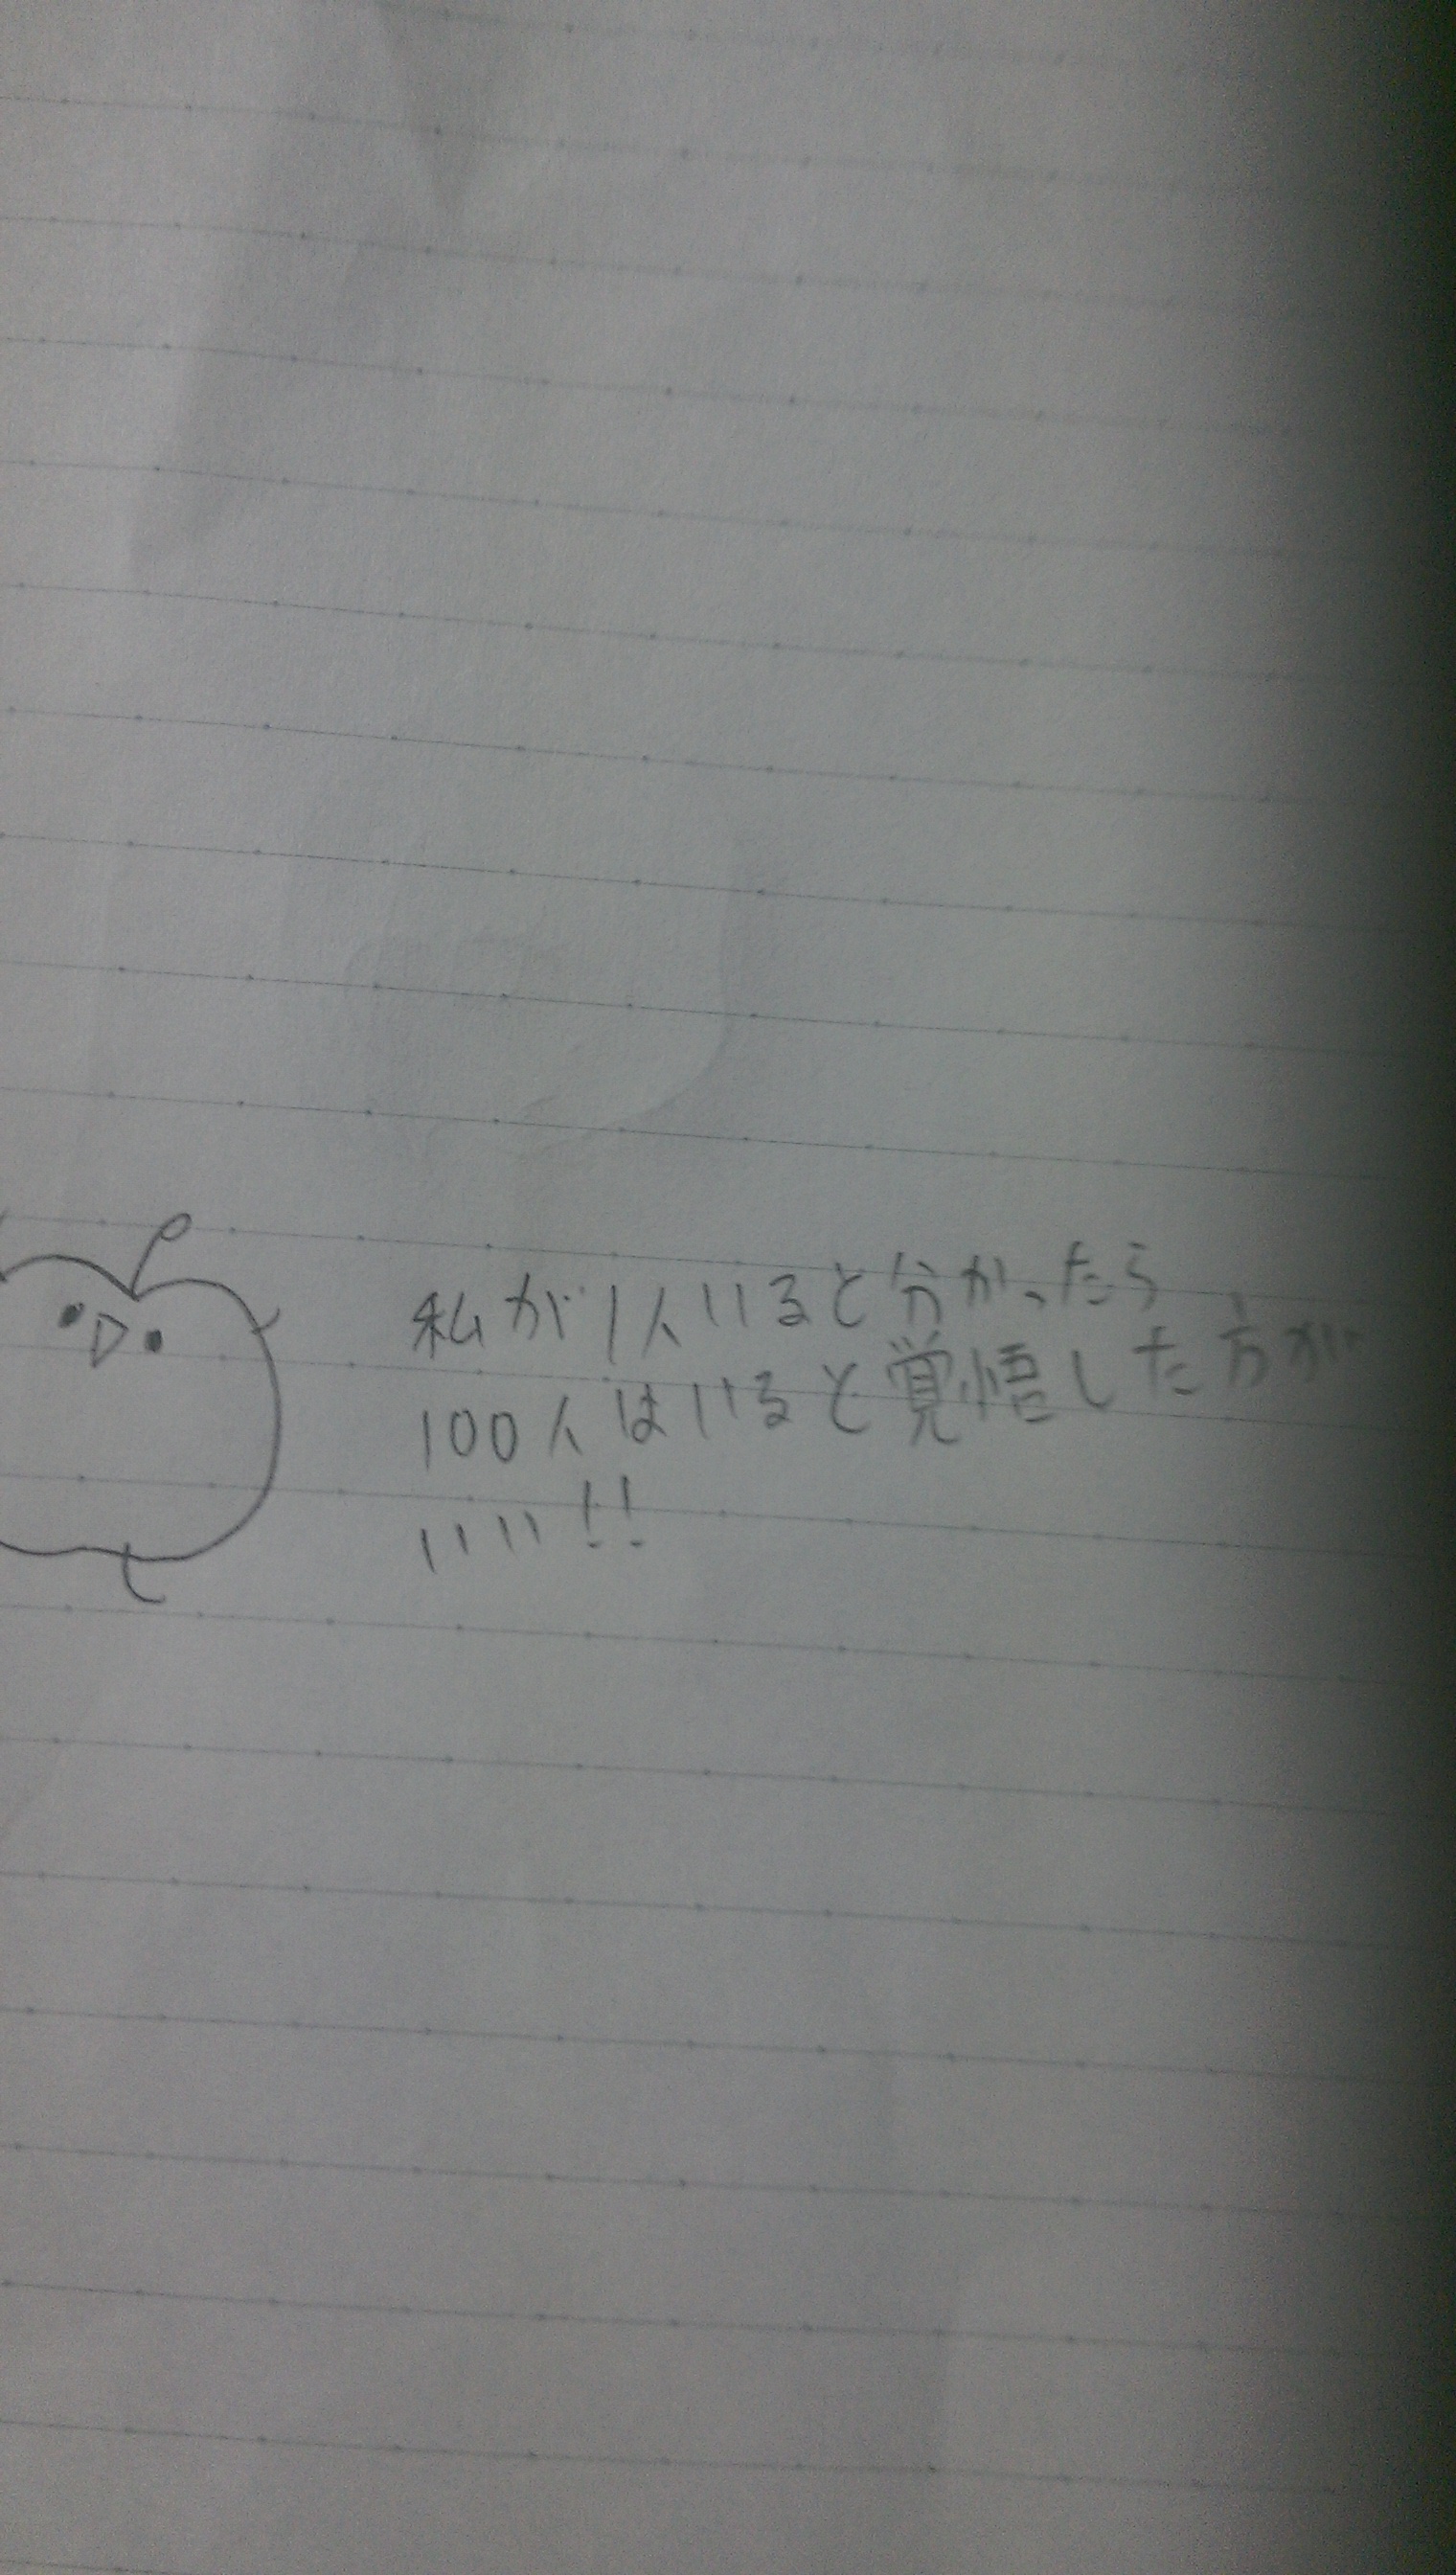 私が1人いると分かったら
100人はいると覚悟した方が
いい!!